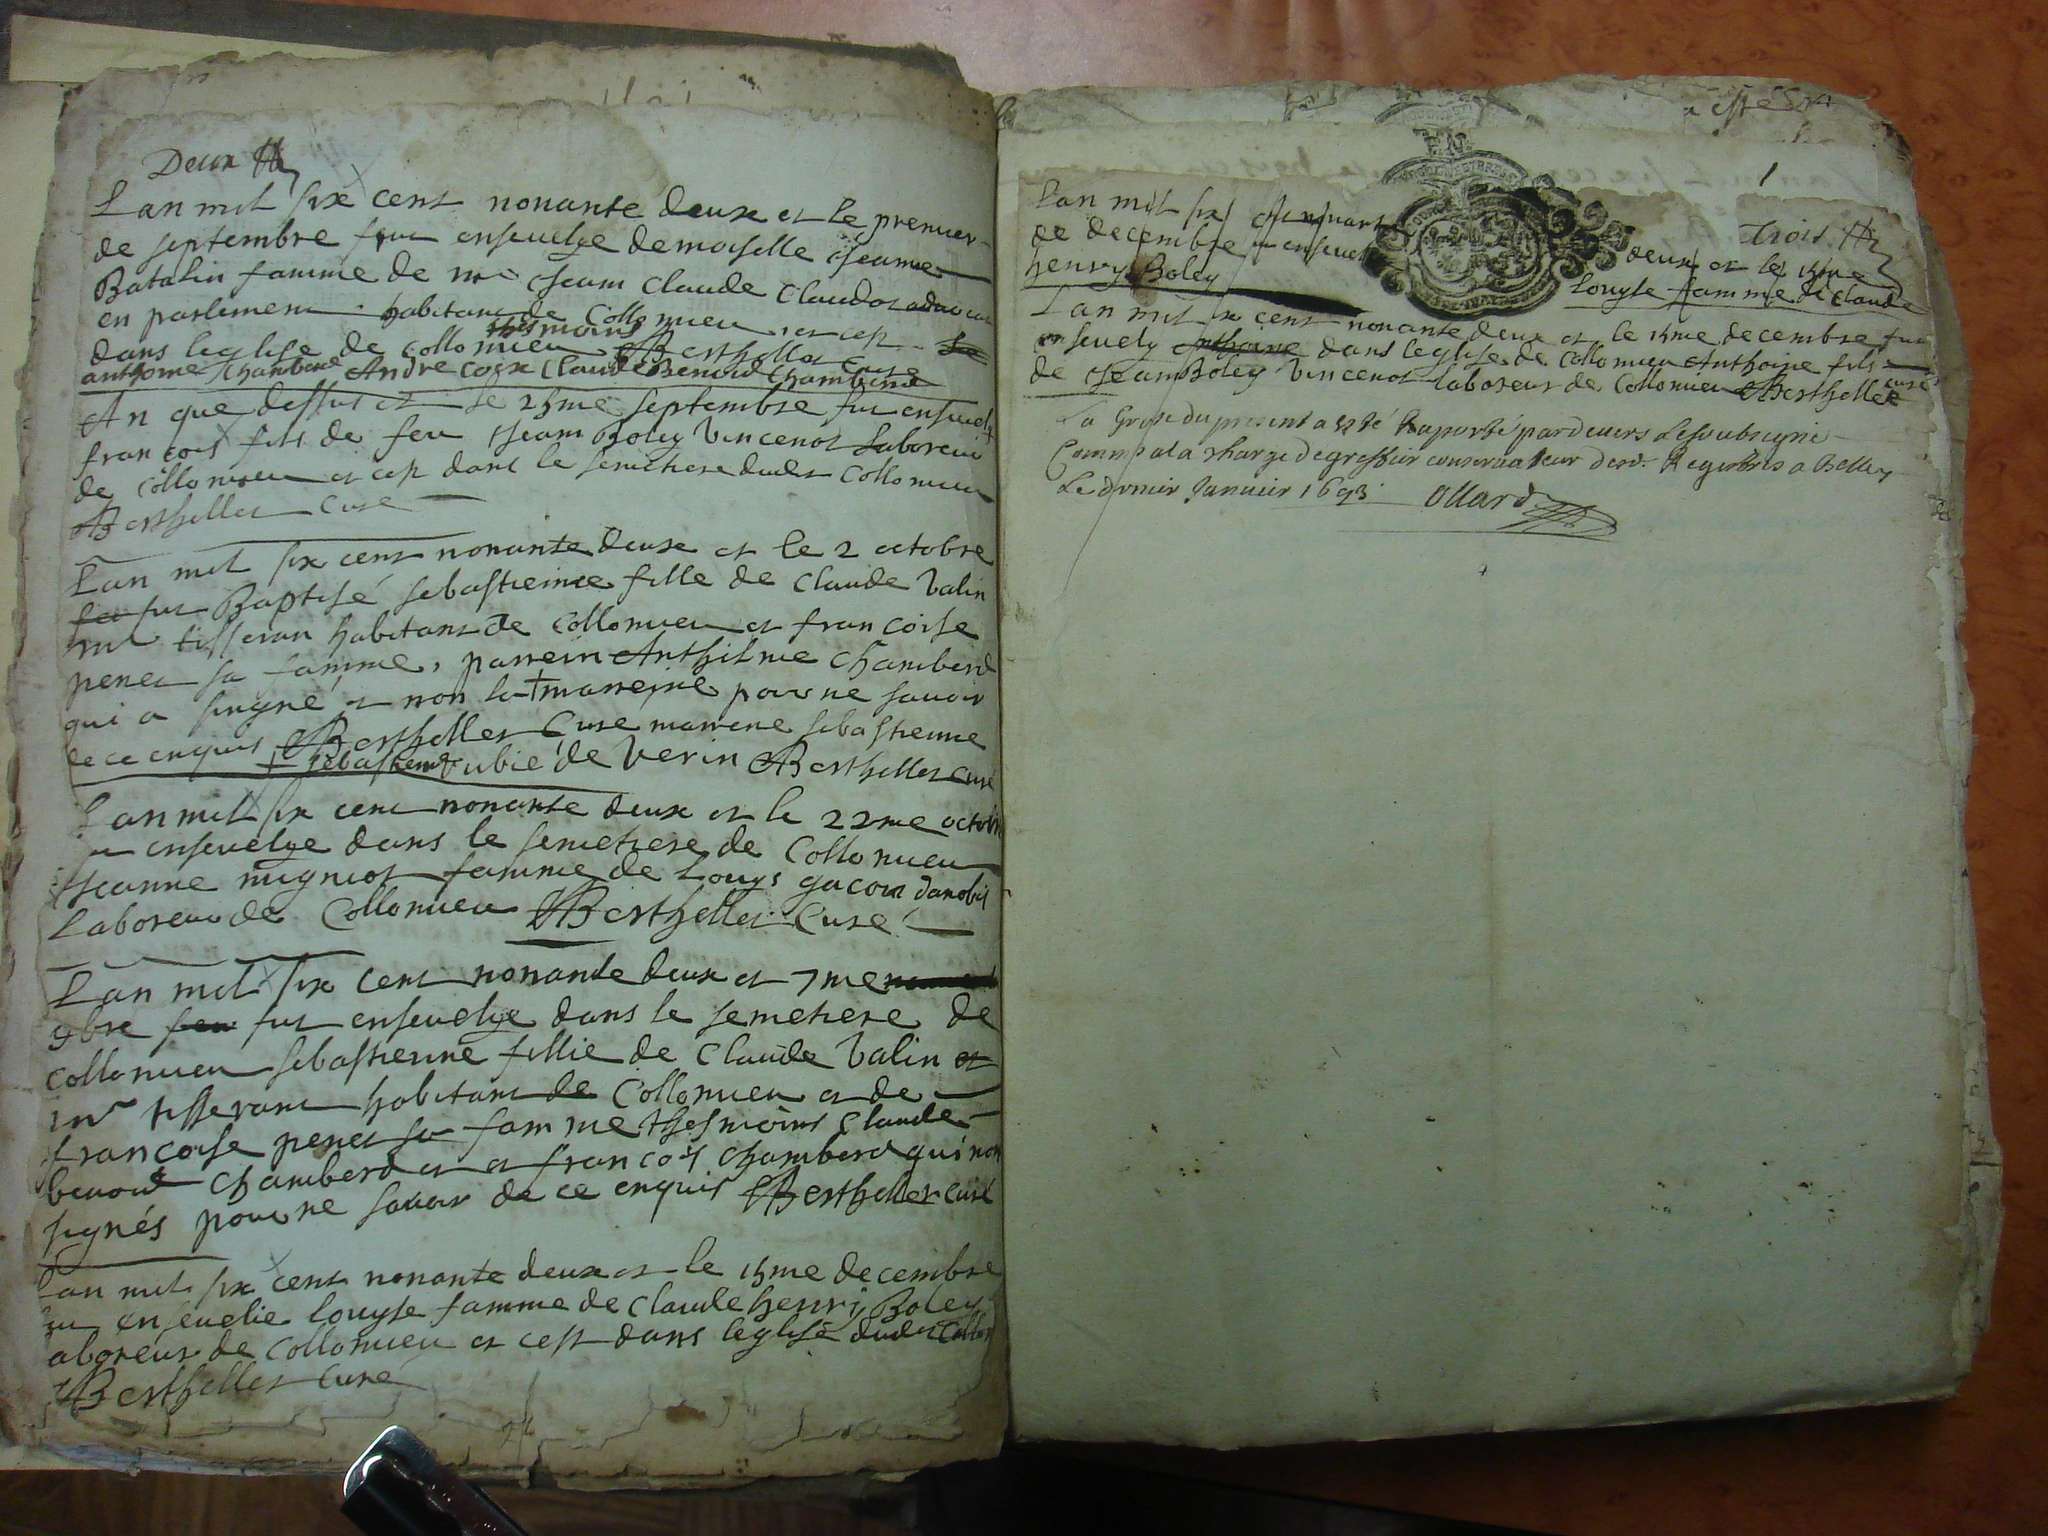 Deux
Lan mil six cent nonante deux et le premier
de septembre fut ensevelye demoiselle Jeanne
Batalin famme de mr Jean Claude Claudot advocat
en parlement habitant de Collomieu, et cest
dans leglise de Collomieu thesmoins Berthellet Cure
anthoine Chamberd André Claude Benoid Chamberd
An que dessus et le 25me septembre fut ensevely
francois fils de feu Jean Boley Vincenot Laboreur
de Collomieu et cest dans le semetiere dudit Collomieu
Berthellet Cure
Lan mil six cent nonante deux et le 2 octobre
fut Baptisé sebastienne fille de Claude Valin
mr tisseran habitant de Collomieu et francoise
penet sa famme, parrein Anthilme Chamberd
qui a singné et non la marreine pour ne savoir
de ce enquis Berthellet Cure marrene sebastienne
sebastienne Vubié de Verin Berthellet Curé
Lan mil six cent nonante deux et le 22me octobre
ensevelye dans le semetiere de Collomieu
Jeanne migniot famme de Louys gacon danobis
Laboreur de Collomieu Berthellet Curé
Lan mil six cent nonante deux et 7me
9bre fut ensevelye dans le semetiere de
Collomieu sebastienne fillie de Claude Valin et
mr tisserant habitant de Collomieu et de
francoise penet sa famme thesmoins Claude
benoid Chamberd et et francois Chamberd qui non
signés pour ne savoir de ce enquis Berthellet curé
Lan mil six cent nonante deux et le 15me decembre
ensevelie Louyse famme de Claude henry Boley
aboreur de Collomieu et cest dans leglise dudit Collo
Berthellet Curé
1
Trois
Lan mil six nonante deux et le 15me
de decembre ensevelie Louyse famme de Claude
henry Boley
Lan mil six cent nonante deux et le 15me decembre fut
ensevely Anthoine dans leglise de Collomieu Anthoine fils
de Jean Boley Vincenot laboreur de Collomieu Berthellet curé
La Grosse du present a esté Raporté pardevers Le soubsigné
Commis a la charge de greffier conservateur desd. Registres a Belley
Le dernier Janvier 1693 Ollard